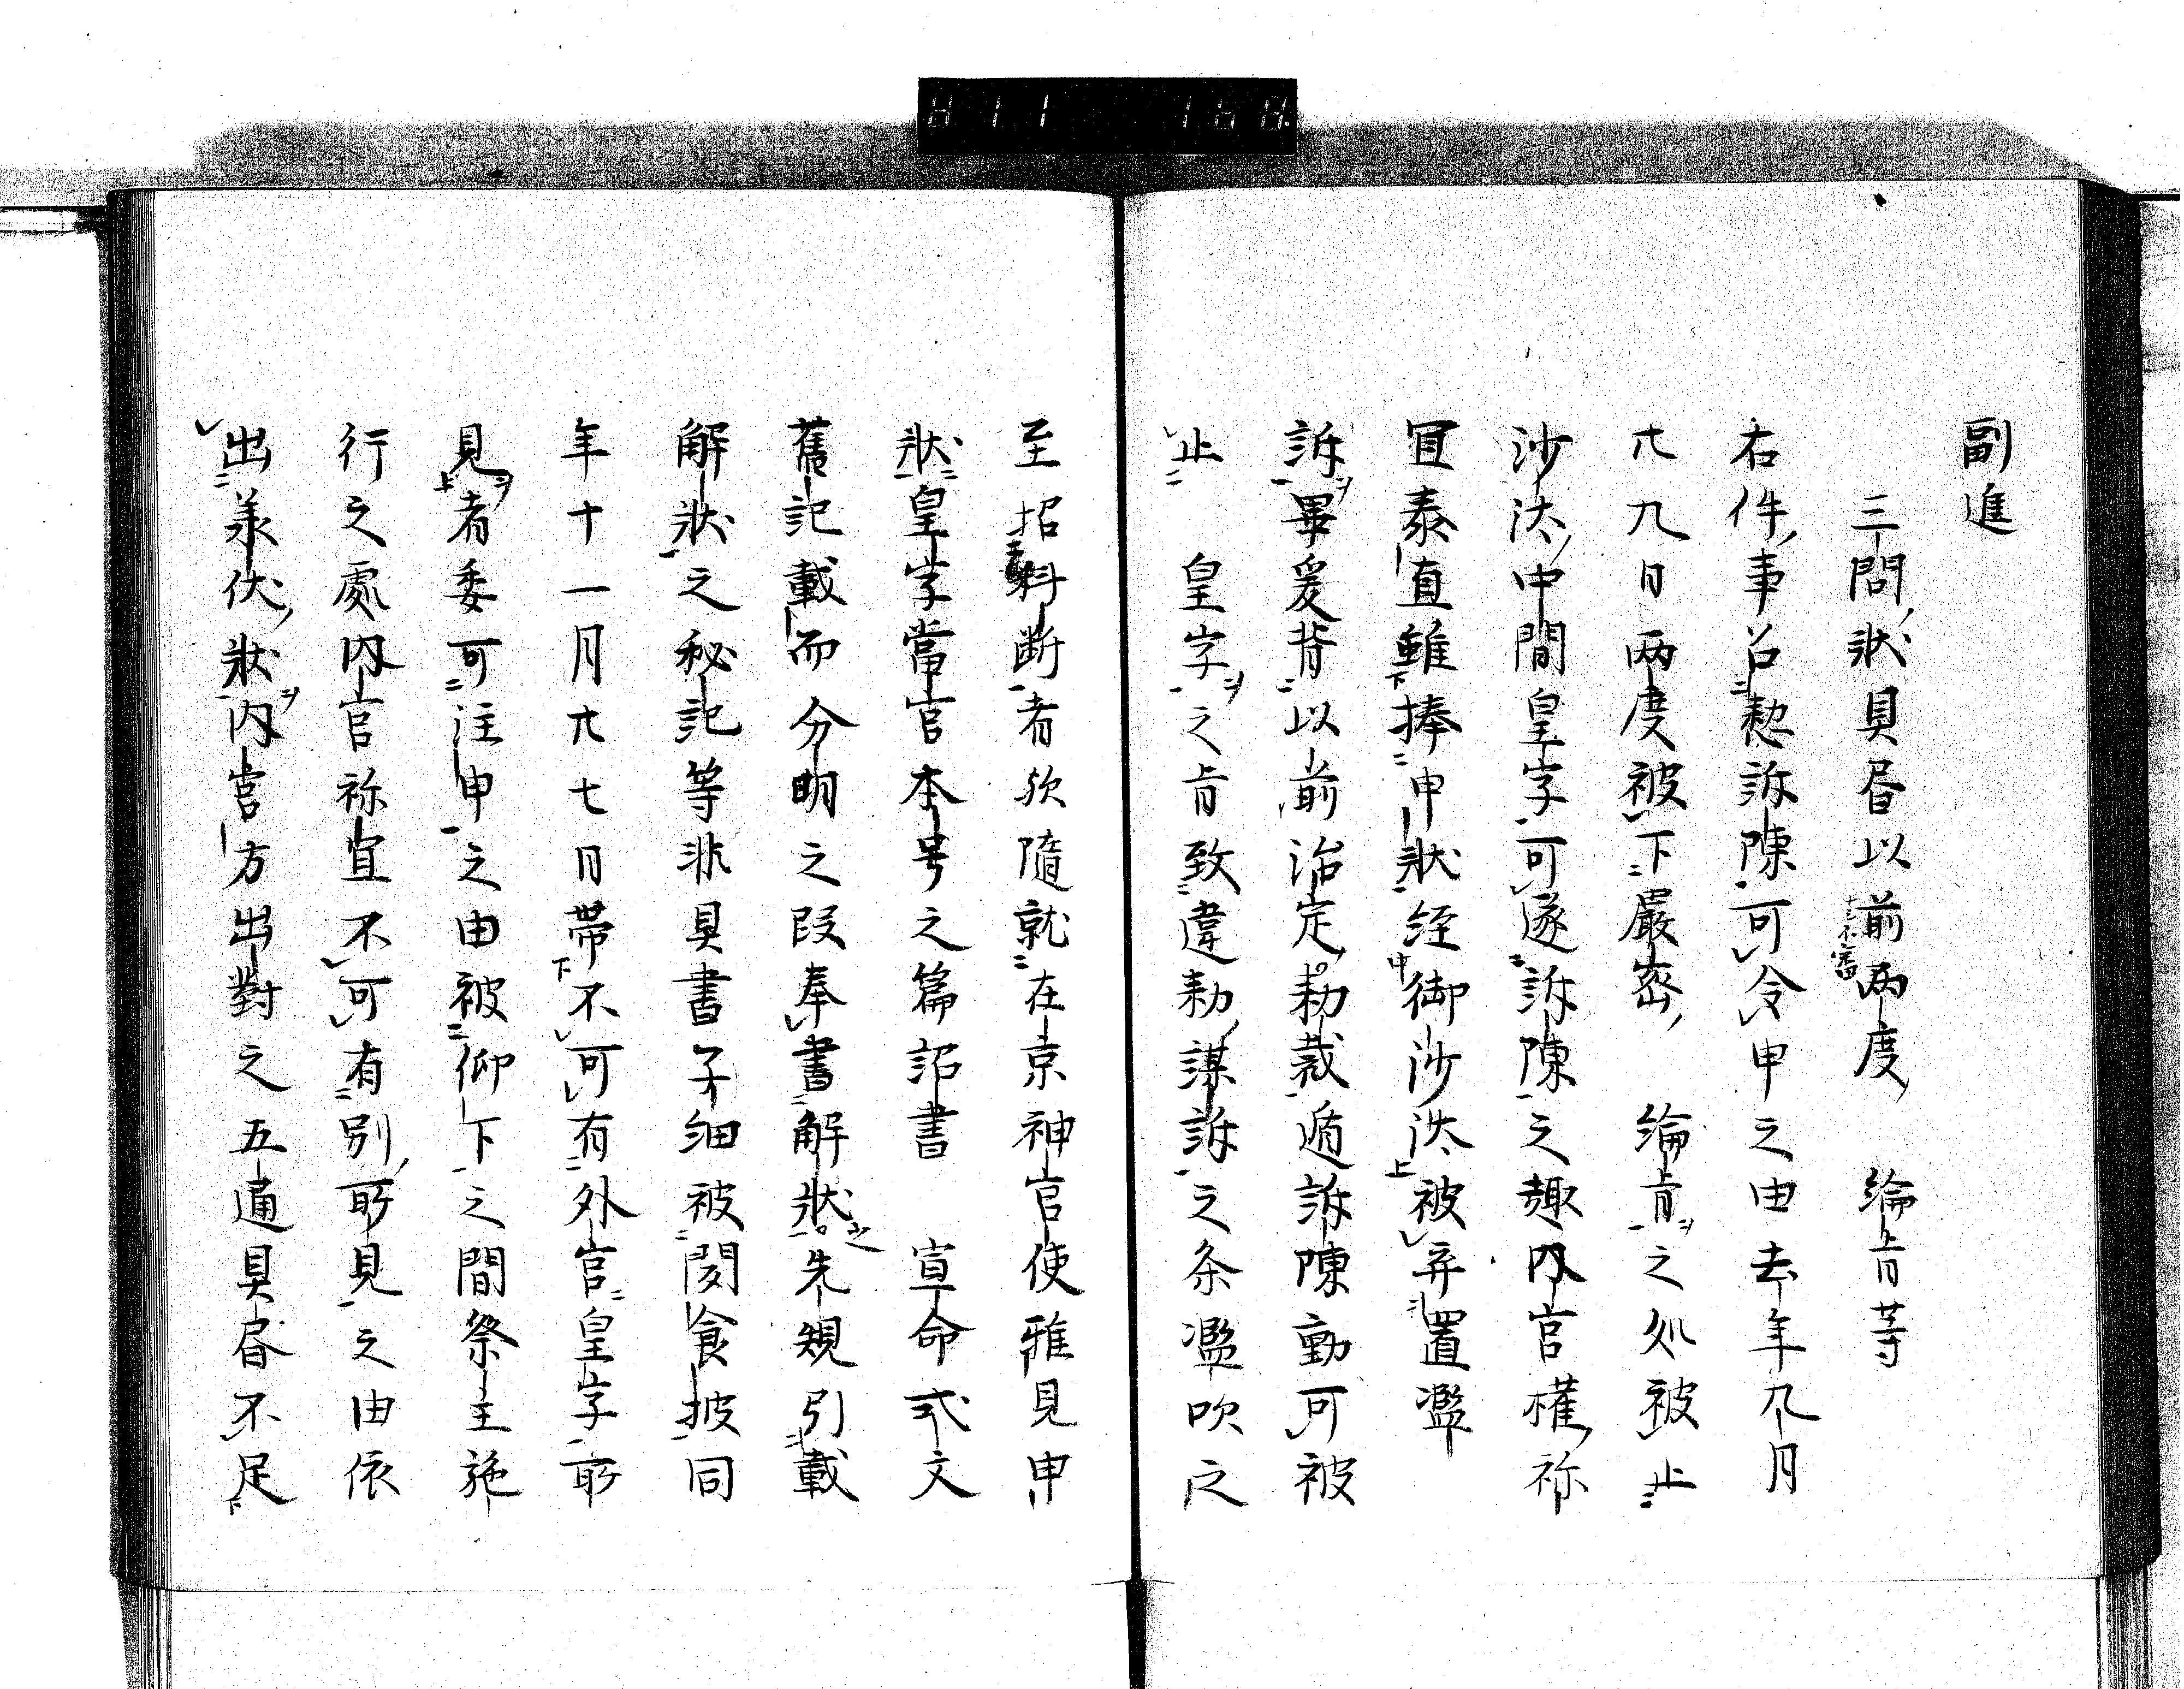 副進
三問状具書以前両度　綸旨等
右件事召整訴陳可令申之由去年九月
廿九日両度被下厳密　綸旨之処被止
沙汰中間皇字可遂訴陳之趣内宮権祢
宜泰直雖捧申状経御沙汰被弃置濫
訴畢爰背以前治定勅裁遁訴陳動可被
止　皇字之旨致違勅謀訴之条濫吹之
至招料断者欤随就在京神官使雅見申
状皇字當宮本号之篇詔書　宣命式文
舊記載而分明之段奉書解状之先規引載
解状之秘記等非具書子細被閣食披同
年十一月廿七日帯不可有外宮皇字所
見者委可注申之由被仰下之間祭主施
行之處内宮祢宜不可有別所見之由依
出義伏状内宮方出對之五通具書不足